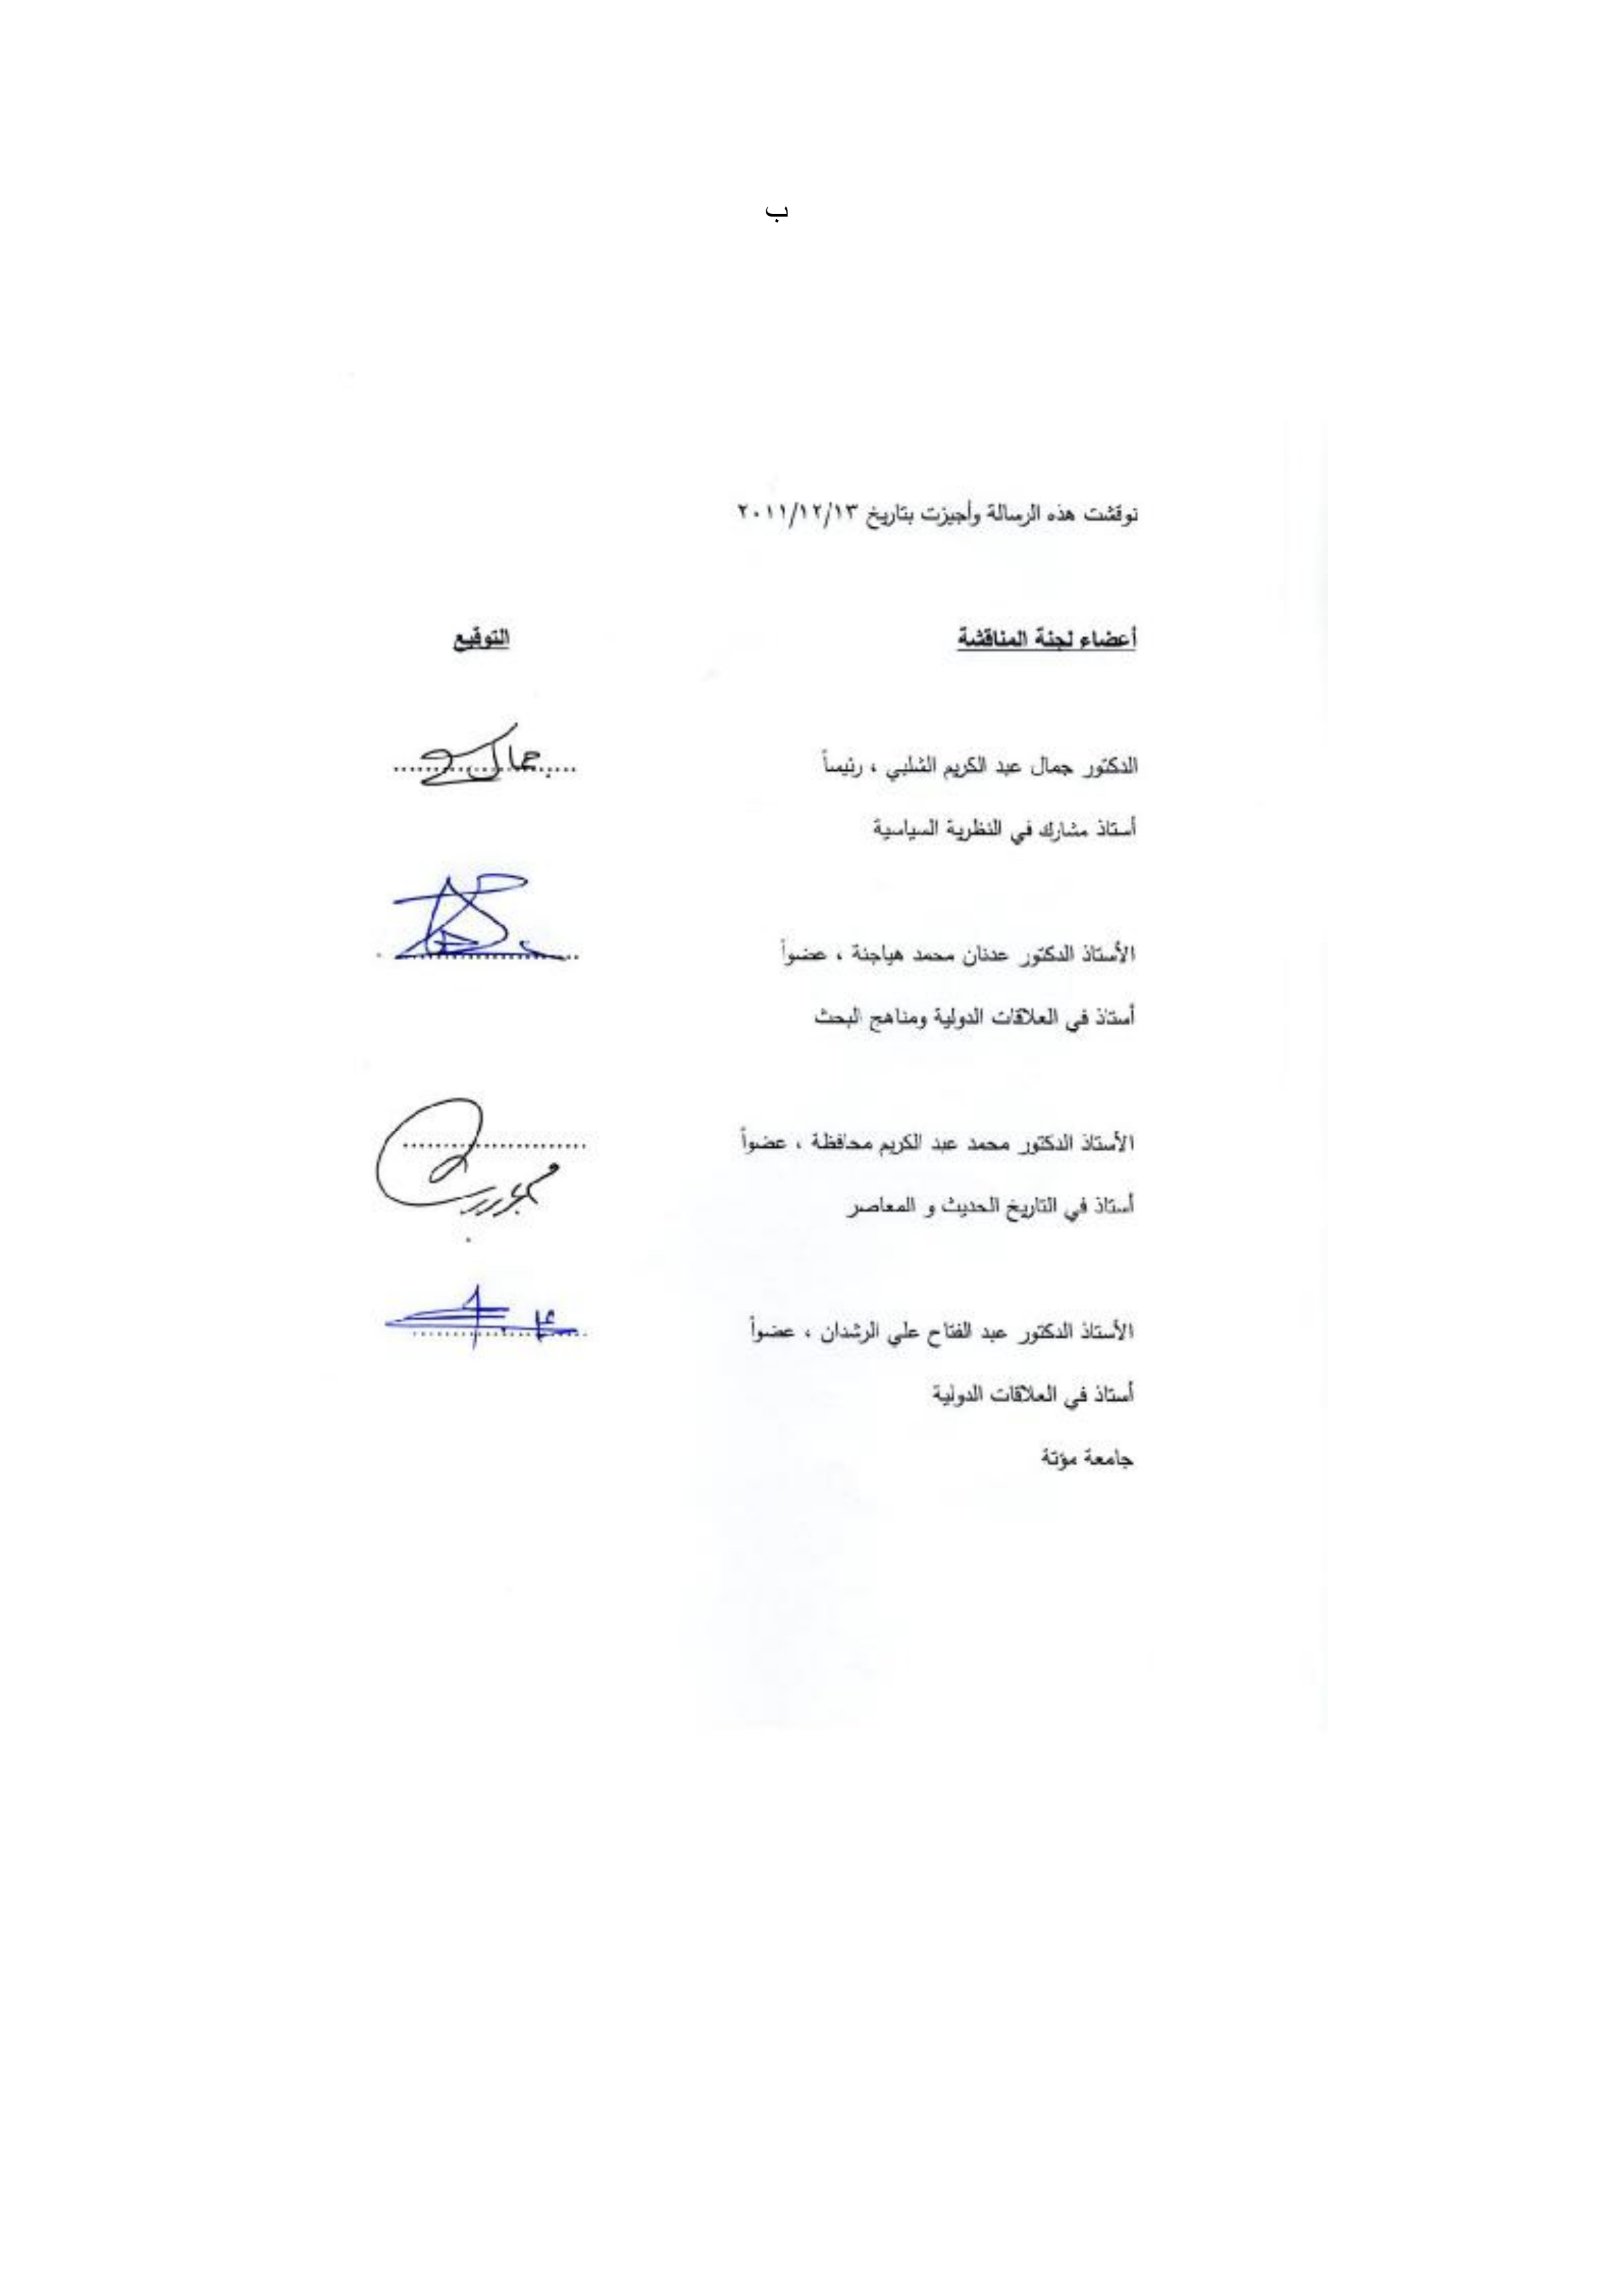 ب
نوقشت هذه الرسالة وأجيزت بتاريخ ٢٠١١/١٢/١٣
أعضاء لجنة المناقشة التوقيع
الدكتور جمال عبد الكريم الشلبي ، رئيساً
أستاذ مشارك في النظرية السياسية
الأستاذ الدكتور عدنان محمد هياجنة ، عضواً
أستاذ في العلاقات الدولية ومناهج البحث
الأستاذ الدكتور محمد عبد الكريم محافظة ، عضواً
أستاذ في التاريخ الحديث و المعاصر
الأستاذ الدكتور عبد الفتاح علي الرشدان ، عضواً
أستاذ في العلاقات الدولية
جامعة مؤتة